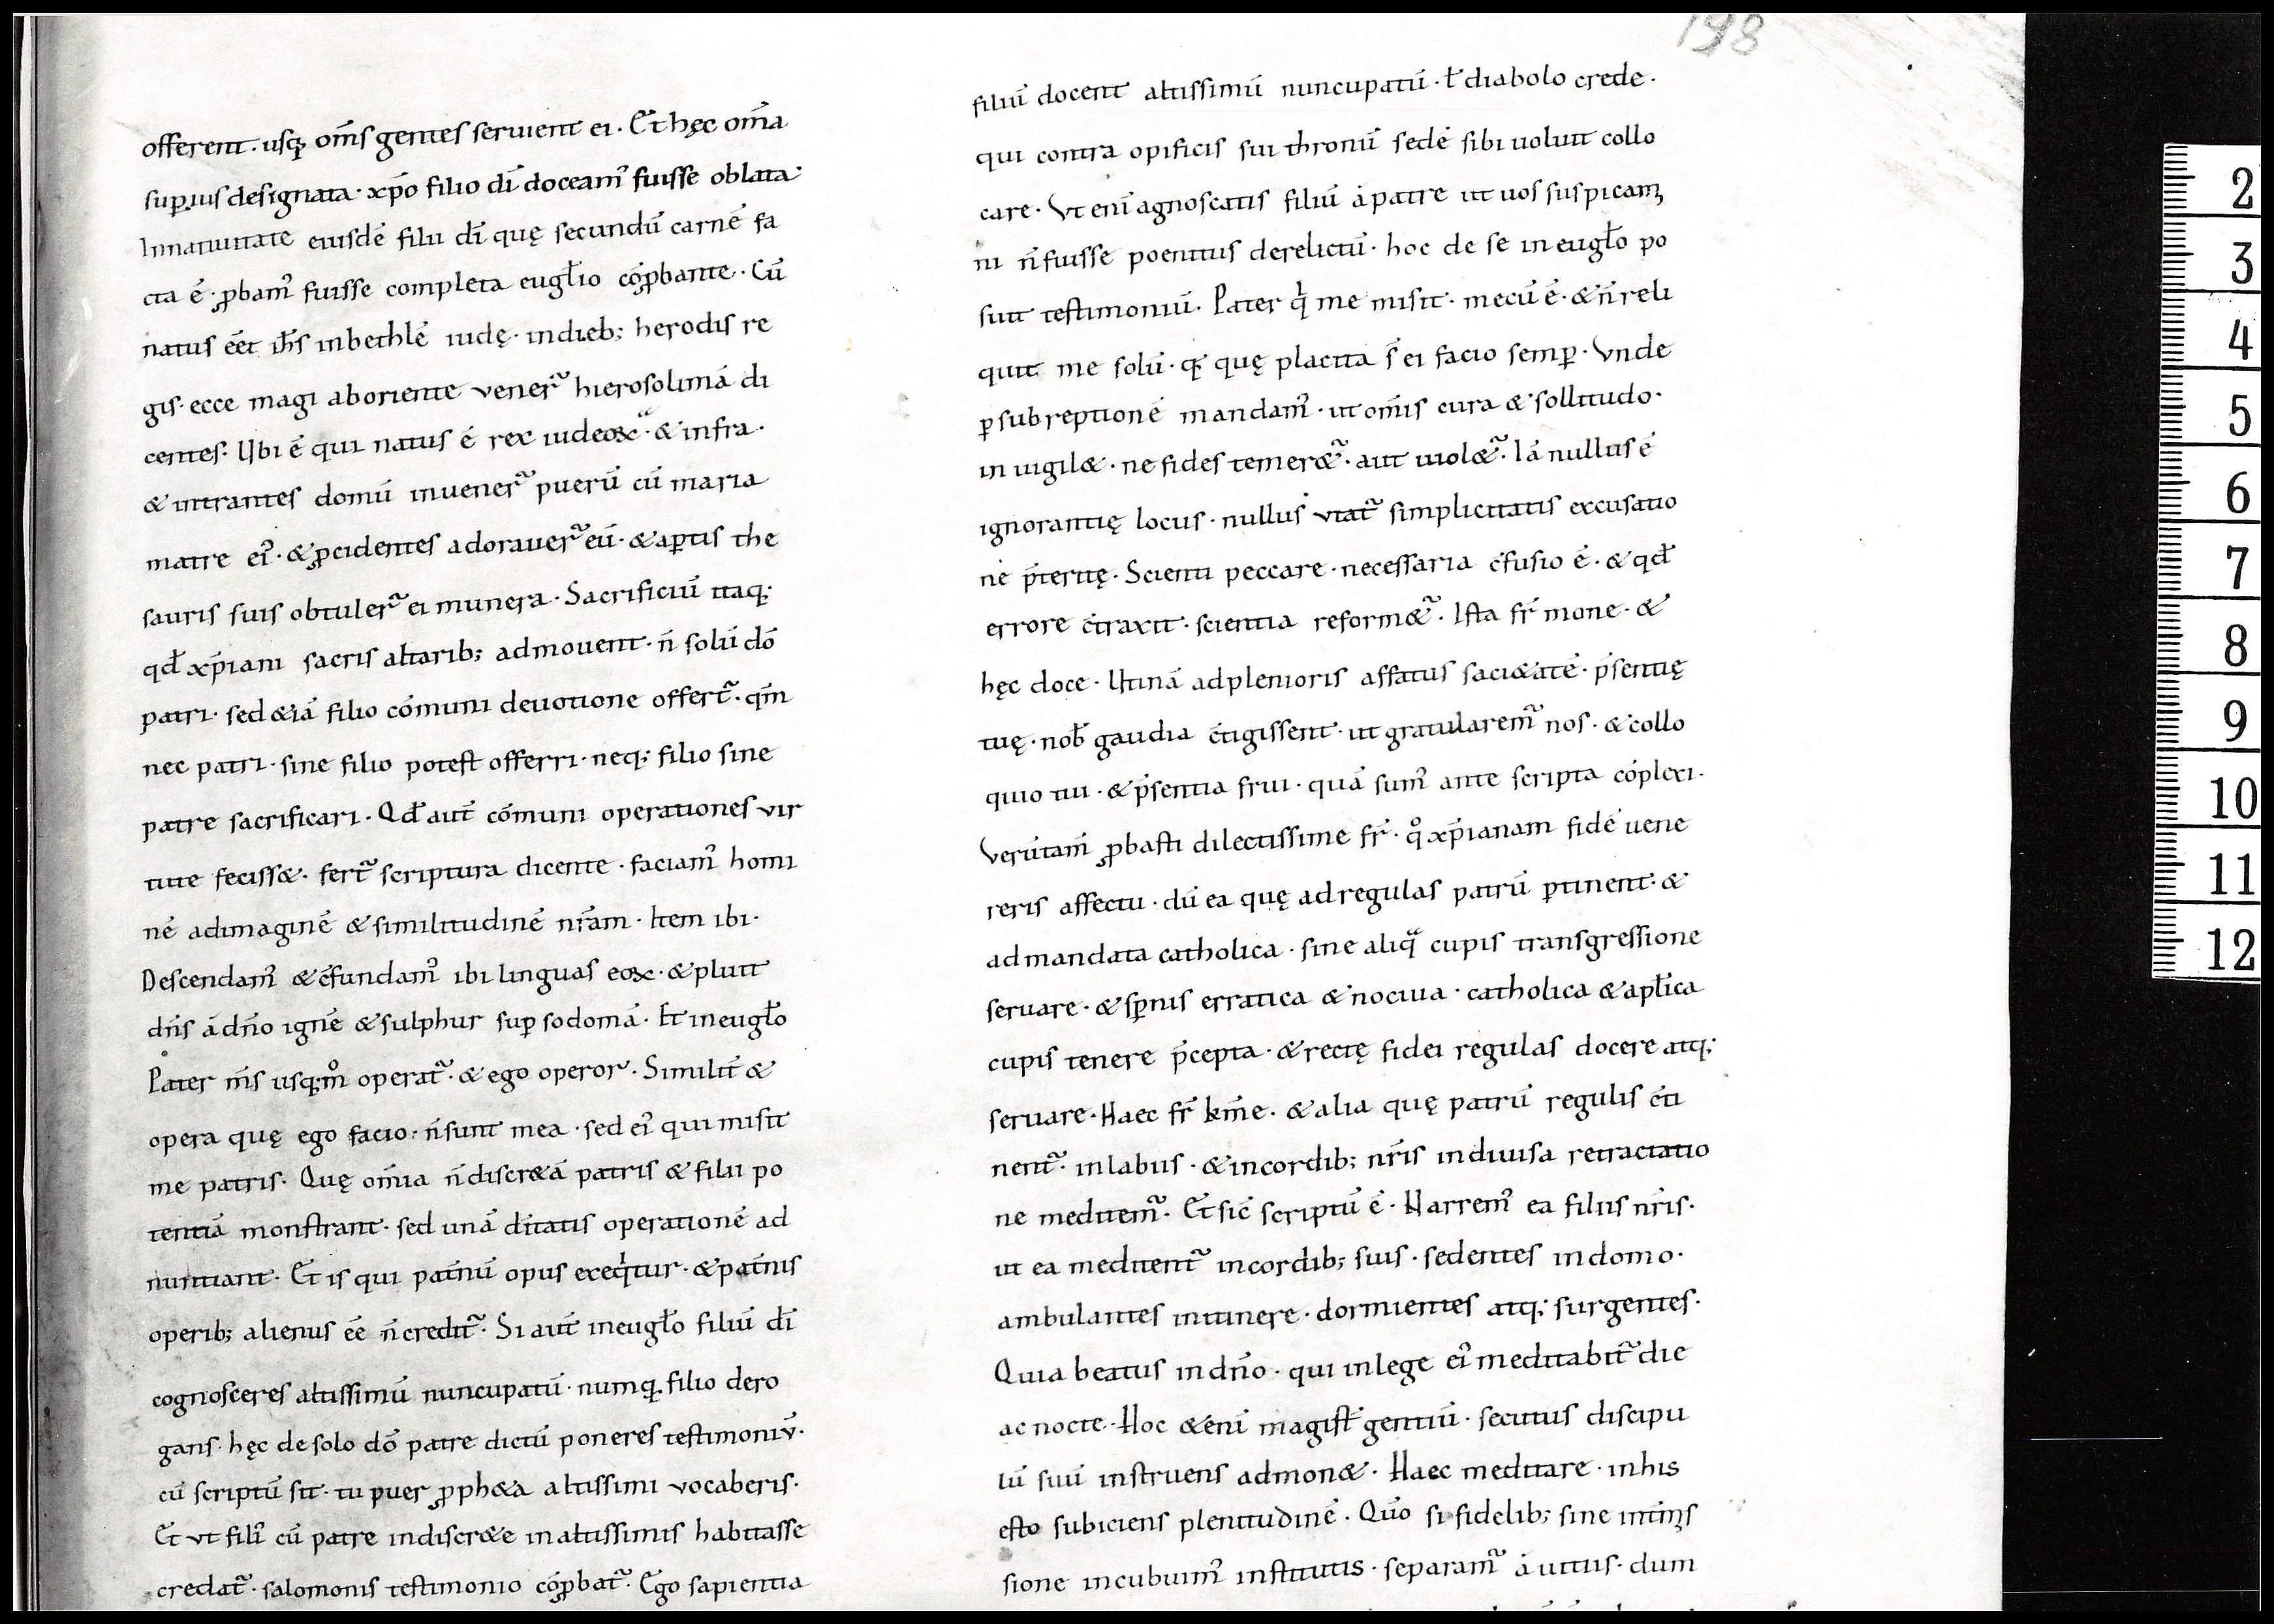 198
offerent · usq; om̄s gentes seruient ei · Et hęc om̄a
sup̱ius designata · xp̄o filio dī doceam᷒ fuisse oblata ·
In natiuitate eiusdē filii dī quę secundū carnē fa
cta ē · ꝓbam᷒ fuisse completa eugl̄io cōꝓbante · Cū
natus eēt ih̄s in bethlē iudę · in dieb; herodis re
gis · ecce magi ab oriente vener̃ hierosolimā di
centes · Ubi ē qui natus ē rex iudeoꝝ · & infra ·
& intrantes domū inuener̃ puerū cū maria
matre ei᷒ · & ꝓcidentes adorauer̃ eū · & ap̱tis the
sauris suis obtuler̃ ei munera · Sacrificiū itaq;
qd̄ xp̄iani sacris altarib; admouent · n̄ solū dō
patri · sed &iā filio cōmuni deuotione offert̃ · qm̄
nec patri · sine filio potest offerri · neq; filio sine
patre sacrificari · Qd̄ aut̄ cōmuni operationes vir
tute feciss& · fert̃ scriptura dicente · faciam᷒ homi
nē ad imaginē & similitudinē nr̄am · Item ibi ·
Descendam᷒ & c̄fundam᷒ ibi linguas eoꝝ · & pluit
dn̄s ā dn̄o ignē & sulphur sup̱ sodomā · Et in eugl̄o
Pater m̄s usq; m̊ operat̃ · & ego operor · Similit̄ &
opera quę ego facio · n̄ sunt mea · sed ei᷒ qui misit
me patris · Quę om̄ia n̄ discr&ā patris & filii po
tentiā monstrant · sed unā d̄itatis operationē ad
nuntiant · Et is qui pat̄nū opus exeq̇tur · & pat̄nis
operib; alienus eē n̄ credit̃ · Si aut̄ in eugl̄o filiū dī
cognosceres altissimū nuncupatū · numq̱ filio dero
gans · hęc de solo dō patre dictū poneres testimoniū ·
cū scriptū sit · tu puer ꝓph&a altissimi vocaberis ·
Et ut fili᷒ cū patre indiscr&e in altissimis habitasse
credat̃ · salomonis testimonio cōꝓbat̃ · Ego sapientia
filiū docent altissimū nuncupatū · ł diabolo crede ·
qui contra opificis sui thronū sedē sibi uoluit collo
care · Vt enī agnoscatis filiū ā patre ut uos suspicam̨
ni n̄ fuisse poenitus derelictū · hoc de se in eugl̄o po
suit testimoniū · Pater q̇ me misit · mecū ē · & n̄ reli
quit me solū · q̱ quę placita s̄ ei facio semp̱ · Vnde
p̱ subreptionē mandam᷒ · ut om̄is cura & sollitudo ·
in uigil& · ne fides temer&̃ · aut uiol&̃ · Iā nullus ē
ignorantię locus · nullus vtat̃ simplicitatis excusatio
nē p̄teritę · Scienti peccare · necessaria c̄fusio ē · & qd̄
errore c̄traxit · scientia reform&̃ · Ista fr̄ mone · &
hęc doce · Utinā ad plenioris affatus saci&atē · p̄sentię
tuę · nob̄ gaudia c̄tigissent · ut gratularem᷒ nos · & collo
quio tui · & p̄sentia frui · quā sum᷒ ante scripta cōplexi ·
Verūtam̄ ꝓbasti dilectissime fr̄ · q̊ xp̄ianam fidē uene
reris affectu · dū ea quę ad regulas patrū p̱tinent · &
ad mandata catholica · sine aliq̃ cupis transgressione
seruare · & sp̱nis erratica & nociua · catholica & apl̄ica
cupis tenere p̄cepta · & rectę fidei regulas docere atq;
seruare · Haec fr̄ km̄e · & alia quę patrū regulis c̄ti
nent̃ · in labiis · & in cordib; nr̄is indiuisa retractatio
ne meditem̃ · Et sic̄ scriptū ē · Narrem᷒ ea filiis nr̄is ·
ut ea meditent̃ in cordib; suis · sedentes in domo ·
ambulantes in itinere · dormientes atq; surgentes ·
Quia beatus in dn̄o · qui in lege ei᷒ meditabit̃ die
ac nocte · Hoc &enī magist̄ gentiū · secutus discipu
lū suū instruens admon& · Haec meditare · in his
esto subiciens plenitudinē · Quo si fidelib; sine
sione incubuim᷒ institutis · separam̃ ā uitiis · dum
2
3
4
5
6
7
8
9
10
11
12